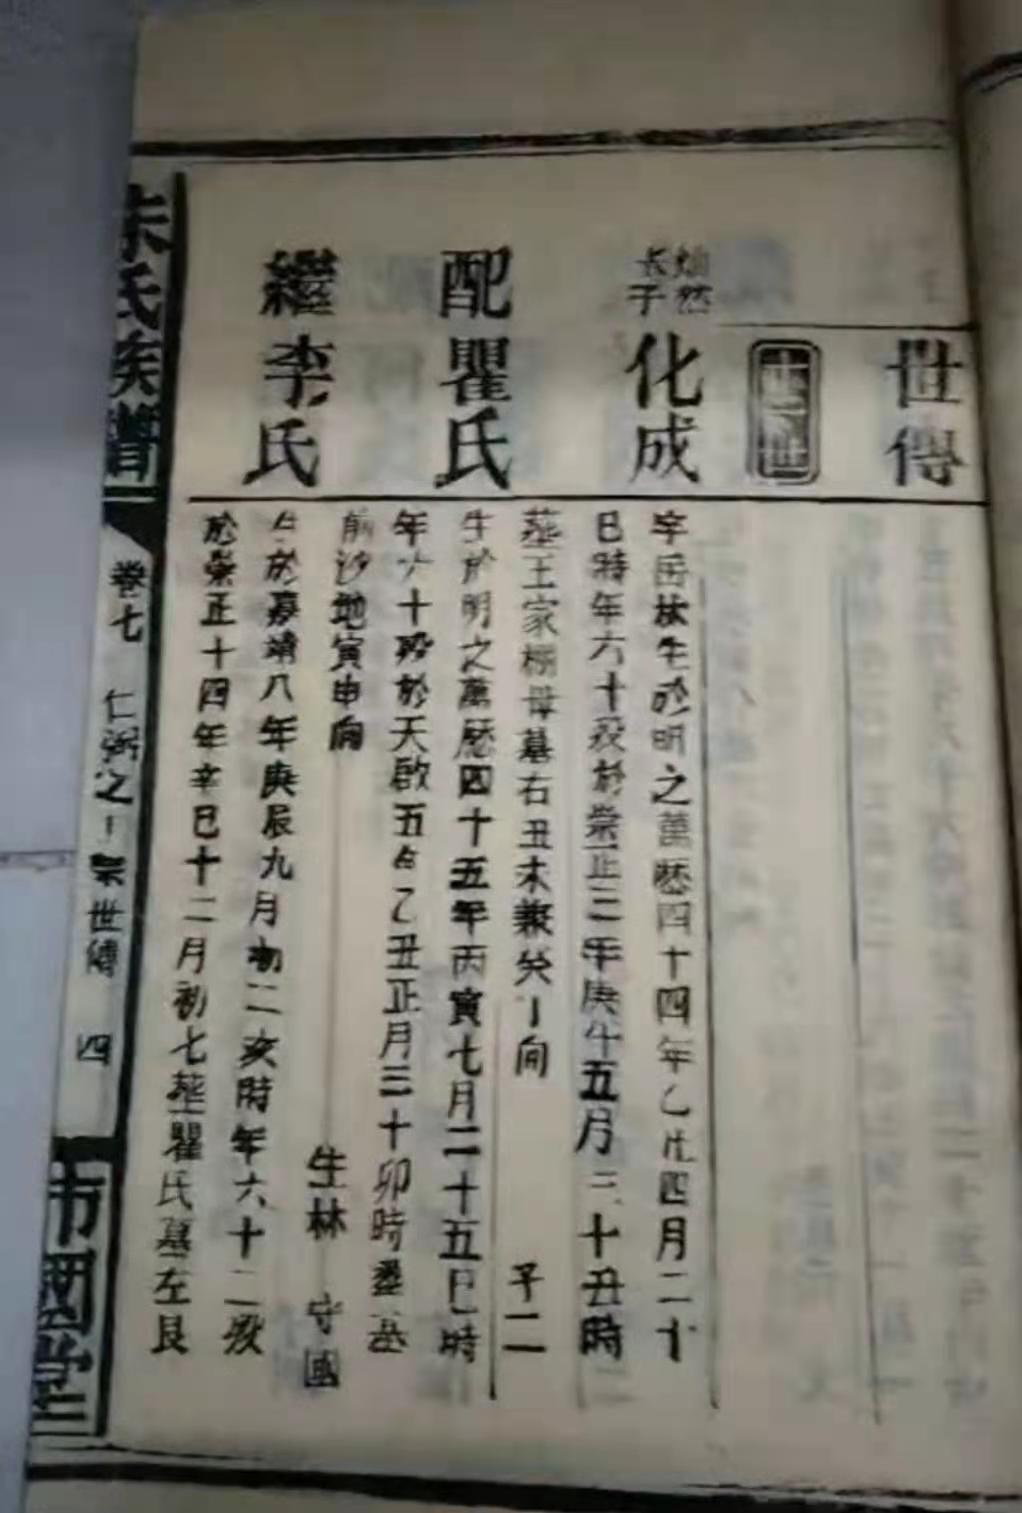 世傳
世
燦然
长子
化成
字岳林生於明之萬歷四十四年乙四月二十
巳時年六十歿於崇正三年庚午五月三十丑時
塟王家棚母墓右丑未兼癸丁向
子二
配瞿氏
生於明之萬歷四十五年丙寅七月二十五巳時
年六十歿於天啟五年乙丑正月三十卯時塟
前沙地寅申向
生林 守國
繼李氏
生於嘉靖八年庚辰九月初二亥時年六十二歿
於崇正十四年辛巳十二月初七塟瞿氏墓左艮
氏族譜
卷七
仁 之 世傳
四
國堂